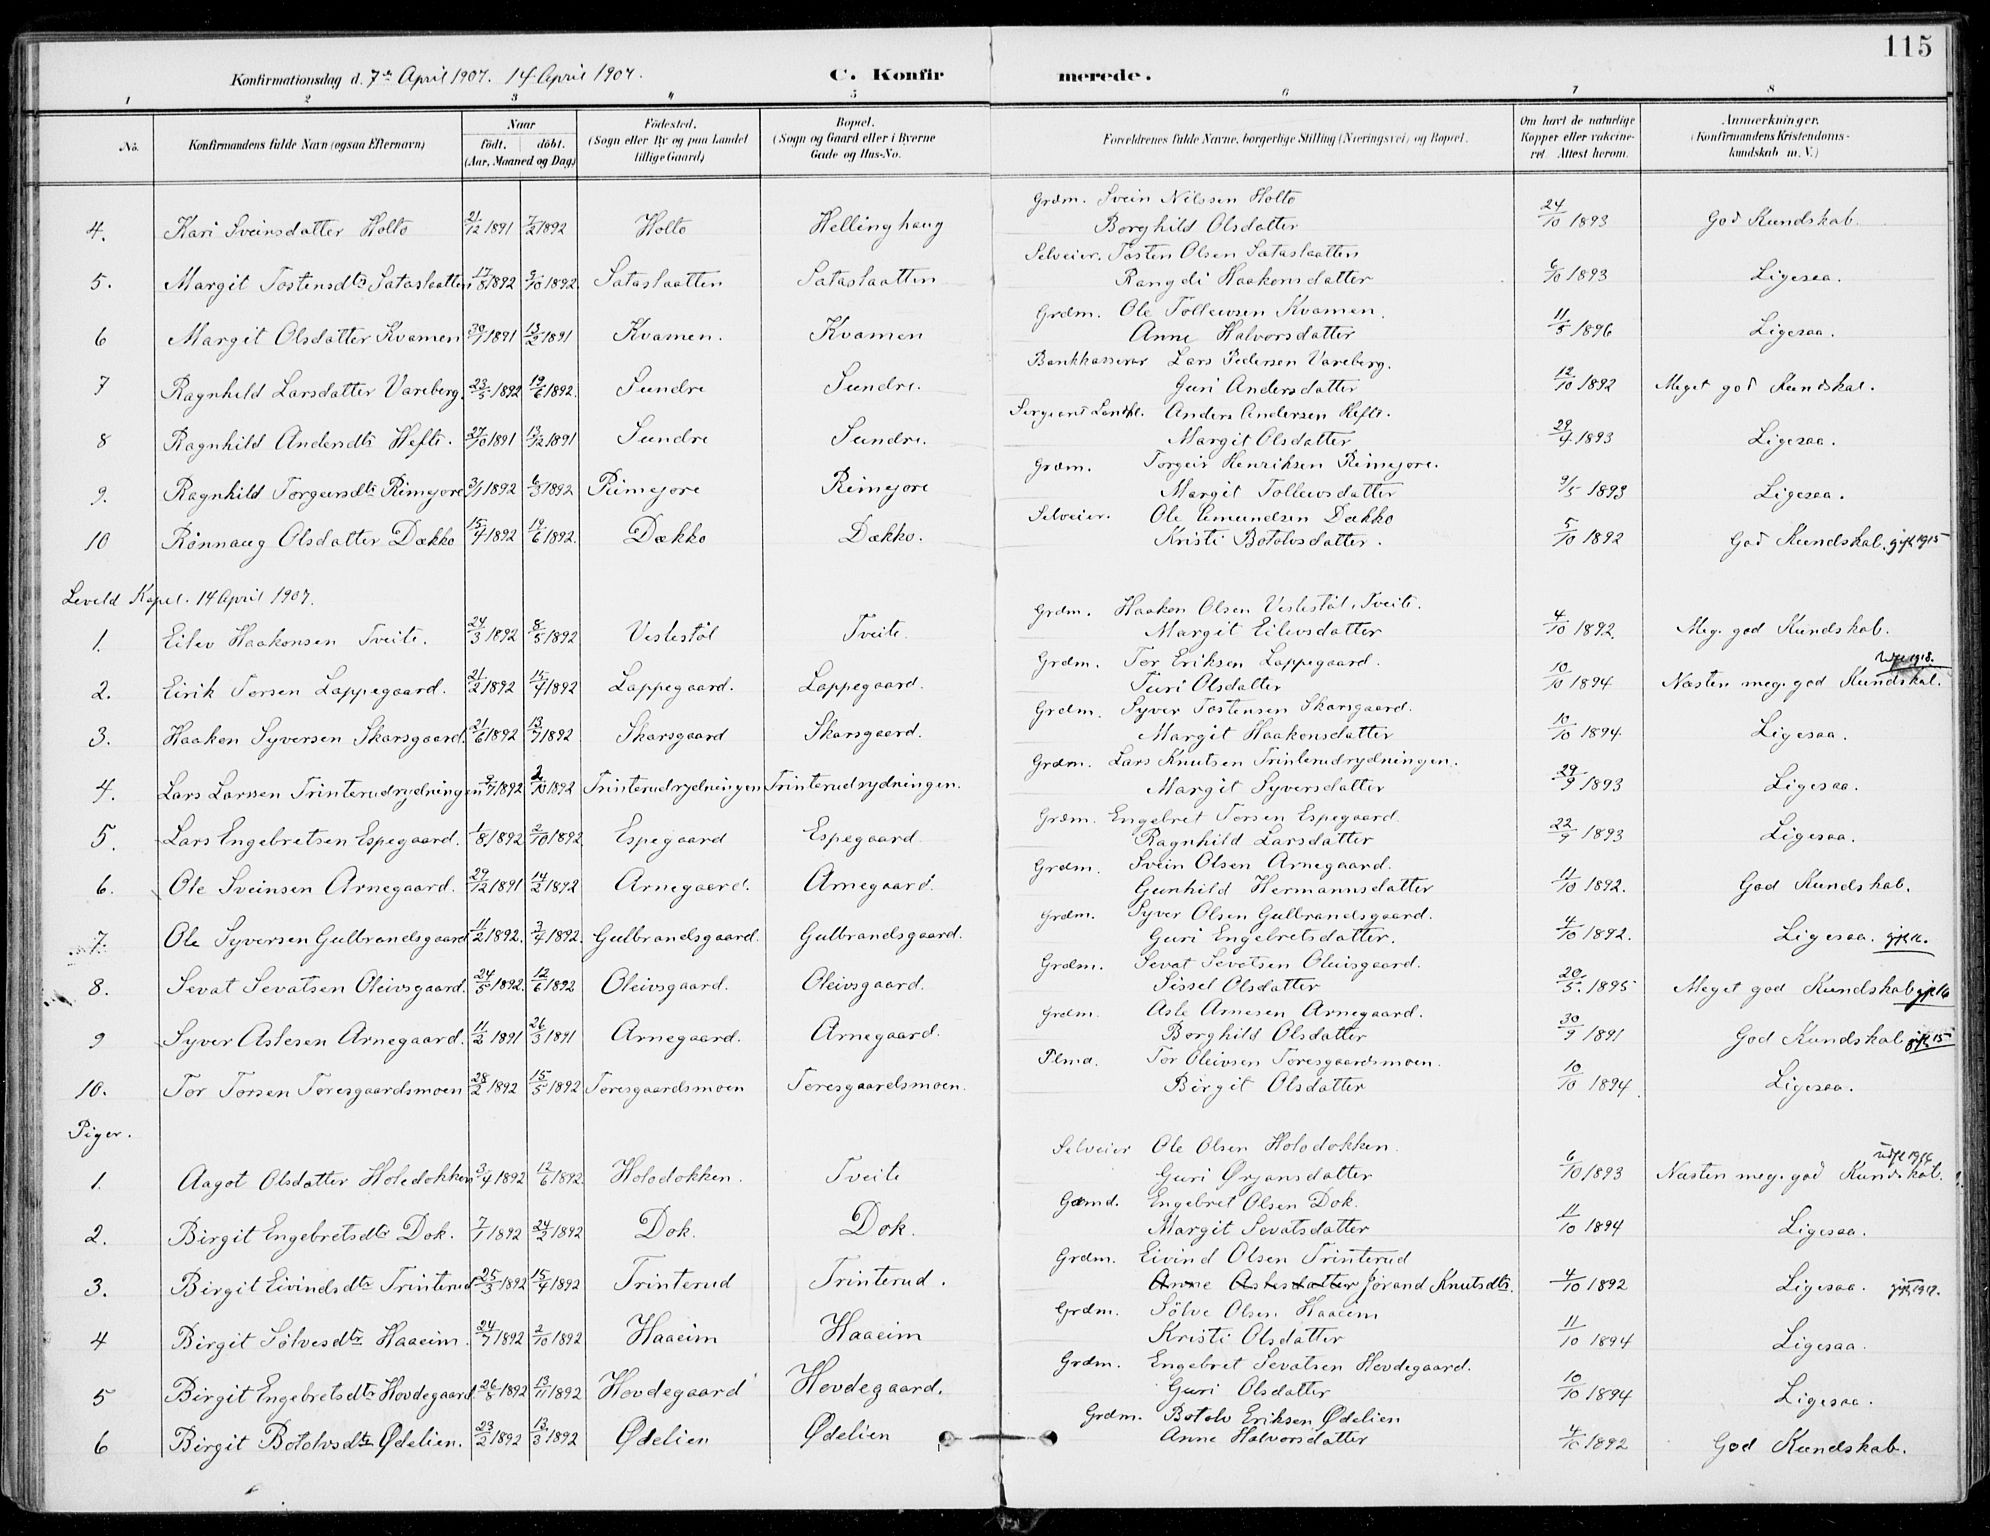 115
Konfirmationsdag d. 7de April 1907. 14 April 1907. C. Konfirmerede.
1 2 3 4 5 6 7 8
No. Konfirmandens fulde Navn (ogsaa Efternavn) Naar født. døbt. (Aar, Maaned og Dag) Fødested. (Sogn eller By og paa Landet tillige Gaard) Bopæl. (Sogn og Gaard eller i Byerne Gade og Hus-No. Forældrenes fulde Navne, borgerlige Stilling (Næringsvei) og Bopæl. Om havt de naturlige Kopper eller vakcineret. Attest herom. Anmærkninger. (Konfirmandens Kristendomskundskab m. V.)
4. Kari Sveinsdatter Holto 21/12 1891 7/2 1892 Holto Hellinghaug Grdm. Svein Nilssen Holto Borghild Olsdatter 24/10 1893 God Kundskab.
5. Margit Tostensdtr Sataslaatten 17/8 1892 9/10 1892 Sataslaatten Sataslaatten Selveier. Tosten Olsen Sataslaatten Rangdi Haakonsdatter 6/10 1893 Ligesaa.
6 Margit Olsdatter Kvamen 1891 1891 Kvamen. Kvamen Grdm. Ole Tollevsen Kvamen. Anne Halvorsdatter 11/5 1896 Ligesaa.
7 Ragnhild Larsdatter Vareberg. 23/5 1892 19/6 1892. Sundre Sundre. Bankkasserer Lars Pedersen Vareberg. Guri Andersdatter 12/10 1892 Meget god Kundskab.
8 Ragnhild Andersdtr Hefte. 27/10 1891 13/12 1891 Sundre Sundre. Sergeant Anders Andersen Hefte. Margit Olsdatter 29/9 1893 Ligesaa.
9. Ragnhild Torgeirsdtr Rimejore 3/1 1892 6/3 1892 Rimejore Reimejore Grdm. Torgeir Henriksen Rimejore. Margit Tollevsdatter 9/5 1893 Ligesaa.
10 Rønnaug Olsdatter Dækko 15/4 1892 19/6 1892. Dækko Dækko. Selveier. Ole Amundsen Dækko Kristi Botolvsdatter. 5/10 1892 God Kundskab. gift 1915
Leveld Kapel. 14 April 1907.
1. Eilev Haakonsen Tveito. 24/3 1892 8/5 1892 Veslestøl Tveito. Grdm. Haakon Olsen Veslestøl, Tveito. Margit Eilevsdatter 4/10 1892. Meg. god Kundskab.
2. Eirik Torsen Lappegaard. 21/2 1892 15/4 1892 Lappegaard. Lappegaard. Grdm. Tor Eriksen Lappegaard. Turi Olsdatter 10/10 1894 Næsten meg. god Kundskab. 1918.
3. Haakon Syversen Skarsgaard. 21/6 1892 13/7 1892 Skarsgaard Skarsgaard. Grdm. Syver Tostensen Skarsgaard. Margit Haakonsdatter 10/10 1894. Ligesaa.
4. Lars Larssen Trinterudrydningen 9/7 1892 2/10 1892 Trinterudrydningen Trinterudrydningen. Grdm. Lars Knutsen Trinterudrydningen. Margit Syversdatter 29/9 1893 Ligesaa.
5. Lars Engebretsen Espegaard. 1/8 1892 2/10 1892. Espegaard Espegaard Grdm. Engebret Torsen Espegaard. Ragnhild Larsdatter 22/9 1893 Ligesaa.
6. Ole Sveinsen Arnegaard. 29/12 1891 14/2 1892 Arnegaard. Arnegaard. Grdm. Svein Olsen Arnegaard. Gunhild Hermannsdatter 11/10 1892. God Kundskab.
7. Ole Syversen Gulbrandsgaard 11/2 1892. 3/4 1892. Gulbrandsgaard. Gulbrandsgaard. Grdm. Syver Olsen Gulbrandsgaard. Guri Engebretsdatter. 4/10 1892. Ligesaa. gift
8. Sevat Sevatsen Oleivsgaard. 24/5 1892. 12/6 1892 Oleivsgaard. Oleivsgaard. Grdm. Sevat Sevatsen Oleivsgaard. Sissel Olsdatter 20/5. 1895 Meget god Kundskab gift 16
9 Syver Aslesen Arnegaard. 11/2 1891 26/3 1891 Arnegaard. Arnegaard. Grdm. Asle Arnesen Arnegaard. Borghild Olsdatter 30/9 1891 God Kundskab gift 15
10. Tor Torsen Toresgaardsmoen 28/2 1892 15/5 1892 Toresgaardsmoen Toresgaardsmoen. Plmd. Tor Oleivsen Toresgaardsmoen. Birgit Olsdatter 10/10 1894. Ligesaa.
Piger.
1. Aagot Olsdatter Holodokken 3/4 1892 12/6 1892. Holodokken. Tveito Selveier Ole Olsen Holodokken. Guri Ørjansdatter 6/10 1893 Næsten meg. god Kundskab.
2. Birgit Engebretsdtr Dok. 7/1 1892 24/2 1892 Dok. Dok. Gdmd. Engebret Olsen Dok. Margit Sevatsdatter 11/10 1894 Ligesaa.
3. Birgit Eivindsdtr Trinterud 25/3 1892 15/4 1892 Trinterud Trinterud. Grdm. Eivind Olsen Trinterud Anne Aslesdatter Jørand Knutsdtr. 4/10 1892 Ligesaa.
4 Birgit Sølvesdtr Haaeim. 24/7 1892 2/10 1892 Haaeim Haaeim Grdm. Sølve Olsen Haaeim Kristi Olsdatter 11/10 1894 Ligesaa.
5 Birgit Engebretsdtr Hovdegaard 26/8 1892 13/11 1892 Hovdegaard Hovdegaard. Grdm. Engebret Sevatsen Hovdegaard. Guri Olsdatter 10/10 1894 Ligesaa.
6 Birgit Botolvsdtr Ødelien. 23/2 1892 13/3 1892 Ødelien Ødelien Grdm. Botolv Eriksen Ødelien Anne Halvorsdatter 4/10 1892 God Kundskab.